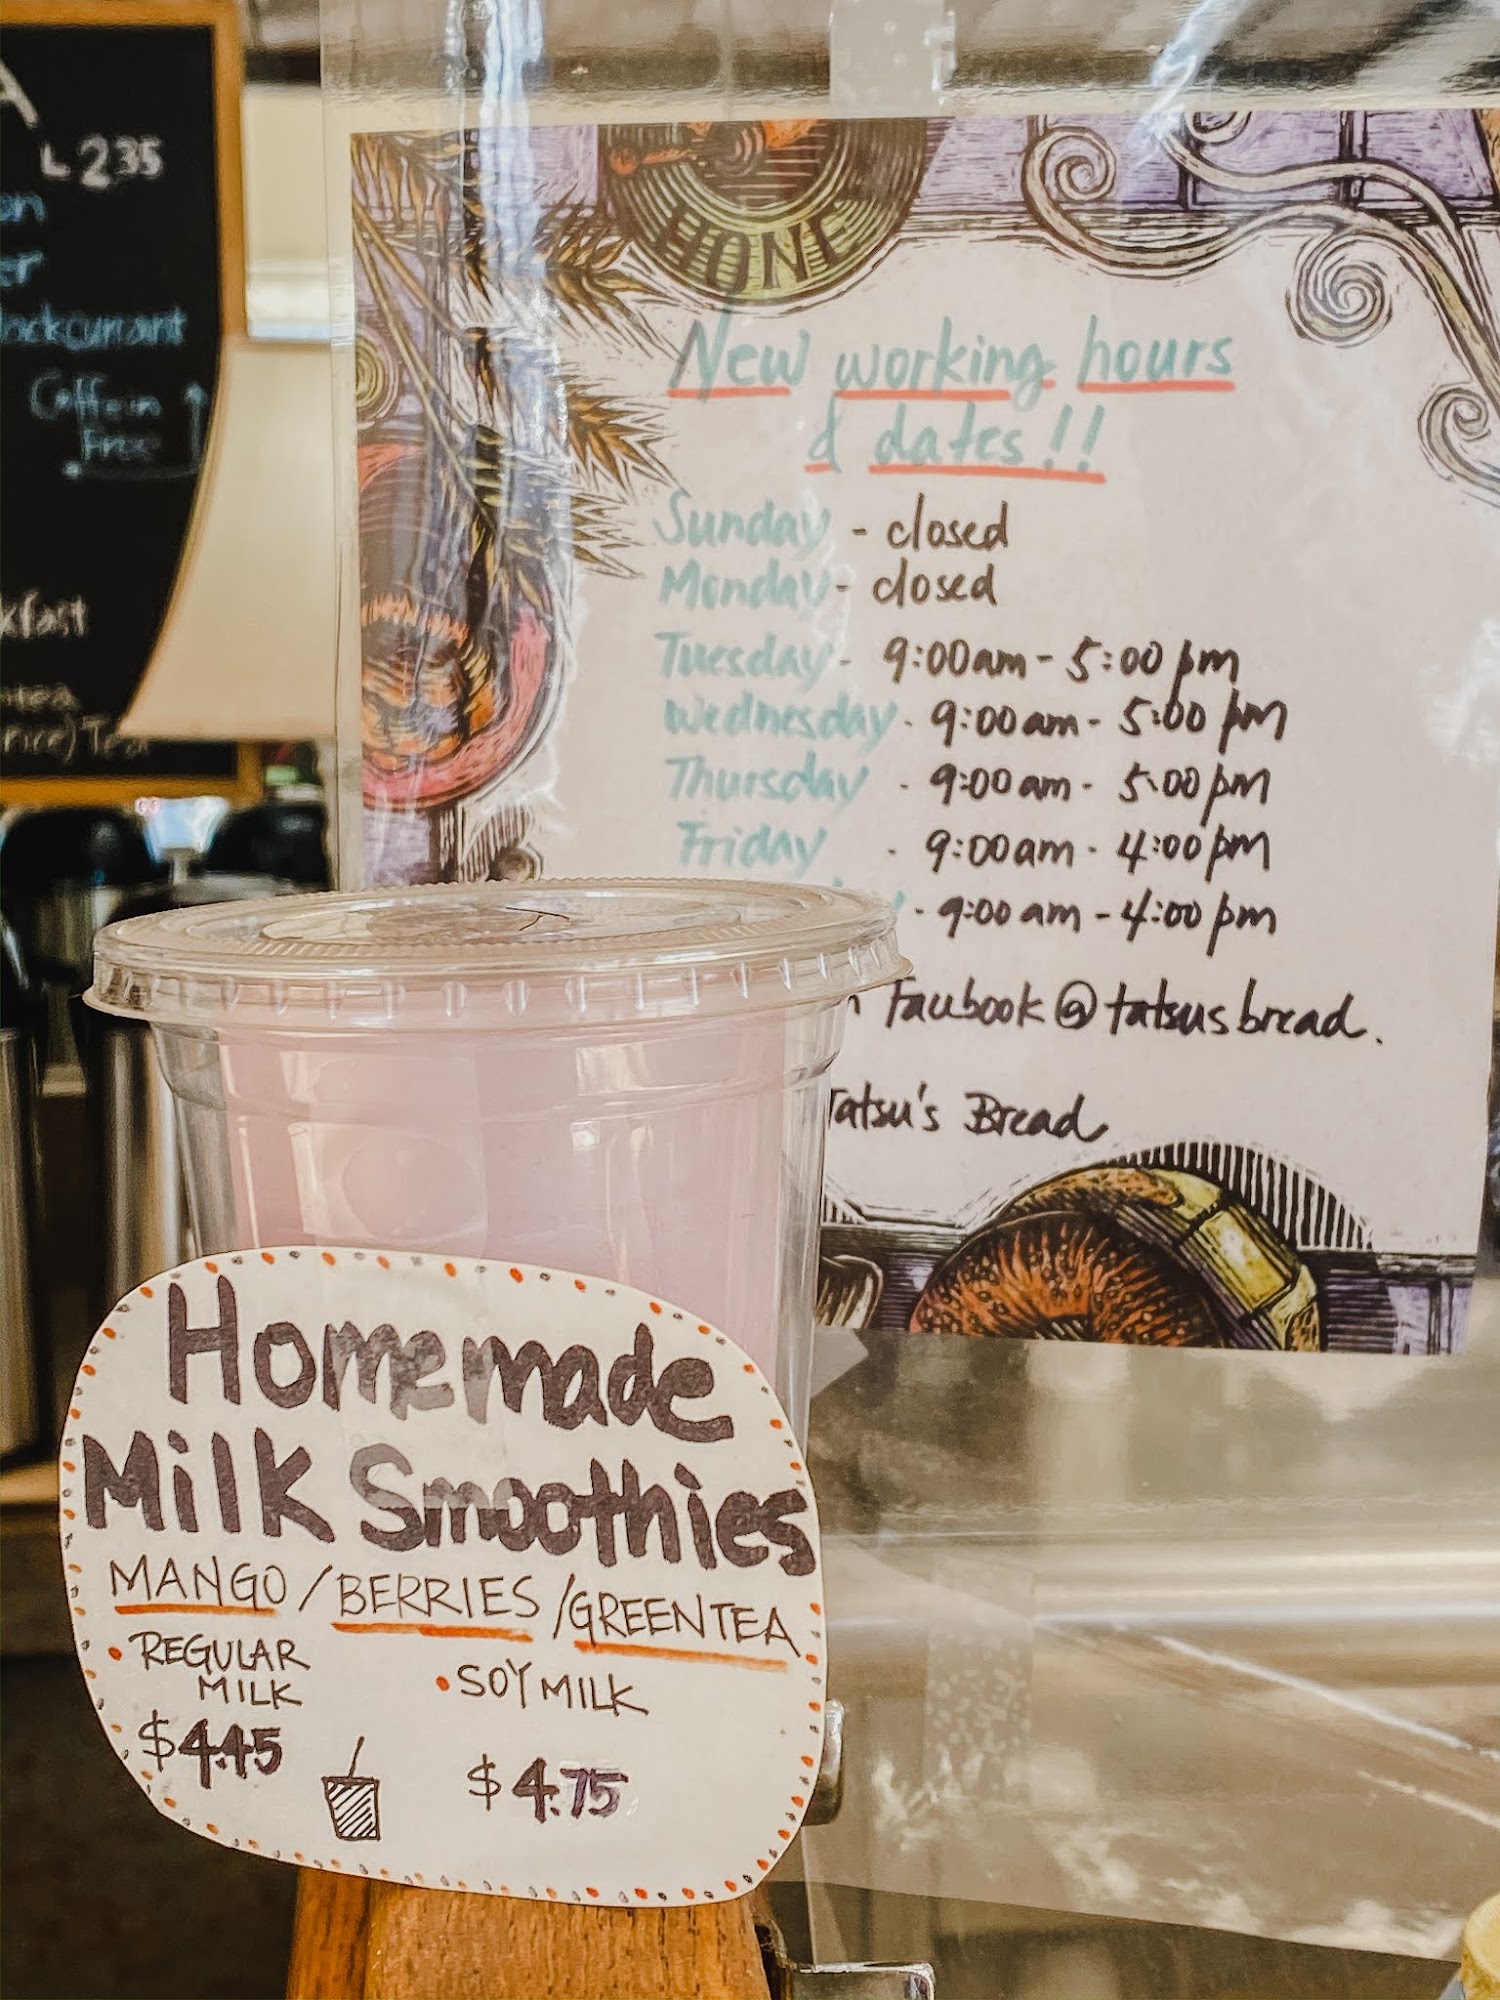 L 2.35
Caffein
Free
Tea
HONE
New working hours
& dates!!
Sunday - closed
Monday - closed
Tuesday - 9:00am - 5:00pm
Wednesday - 9:00am - 5:00pm
Thursday - 9:00am - 5:00pm
Friday - 9:00am - 4:00pm
- 9:00am - 4:00pm
Facebook @tatsusbread.
Tatsu's Bread
Homemade
Milk Smoothies
MANGO / BERRIES / GREEN TEA
• REGULAR
MILK
$4.45
• SOY MILK
$4.75